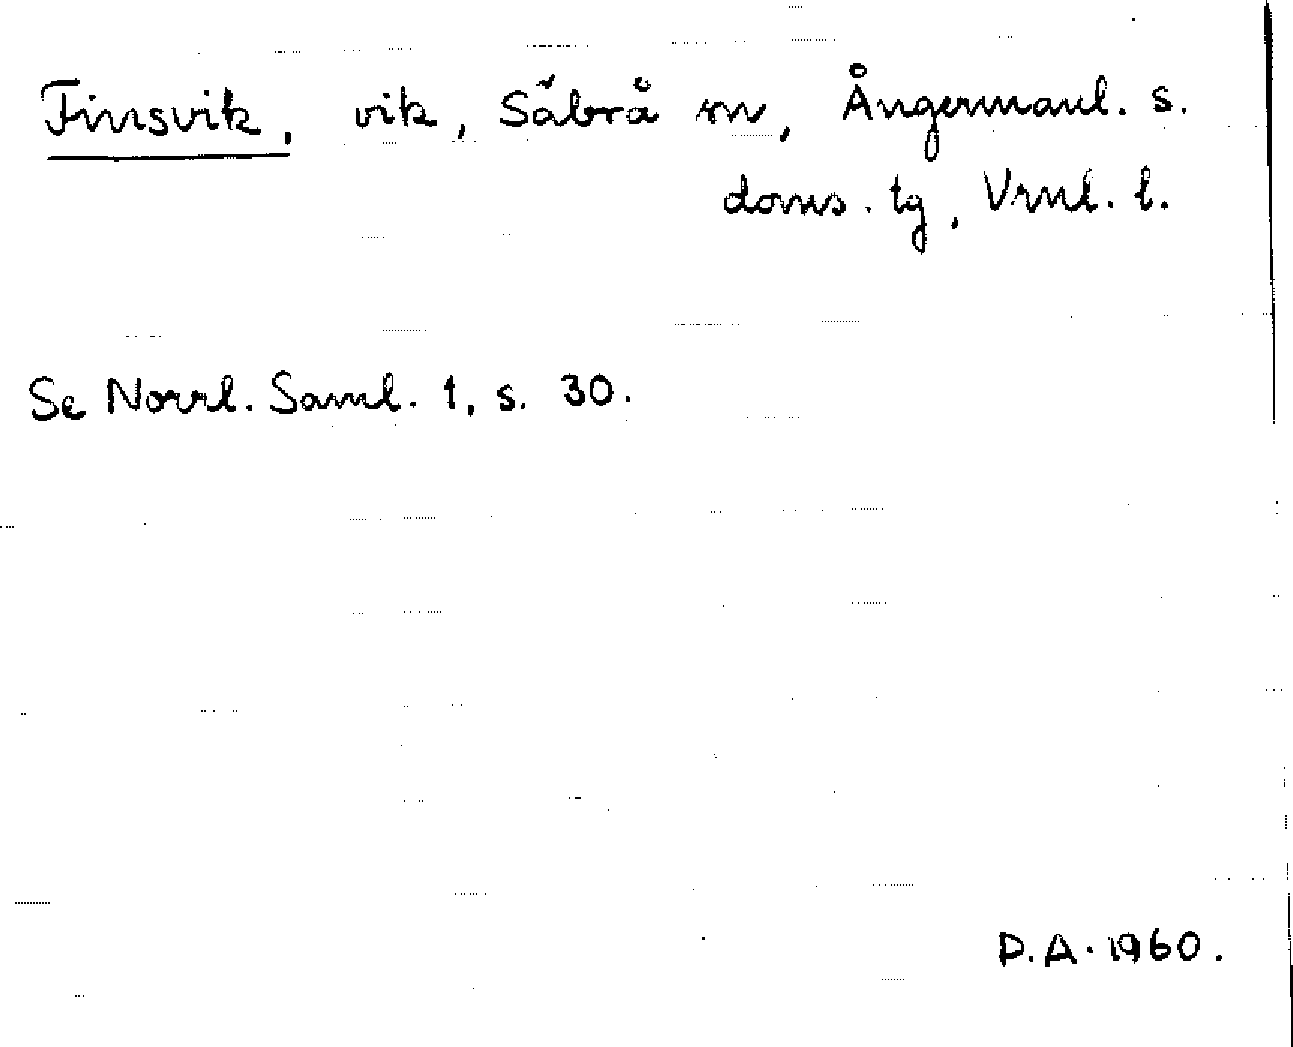 Finsvik, vik, Säbrå sn, Ångermanl. s.
doms. tg, Vrnl. l.
Se Norrl. Saml. 1, s. 30.
D.A. 1960.